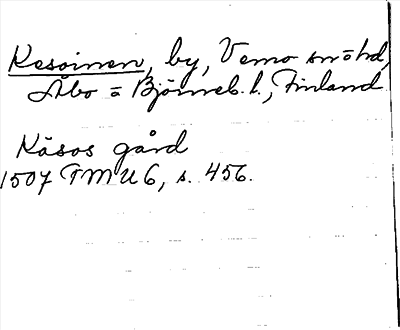 Kesoinen, by, Vemo sn o hd,
Åbo o Björneb. l., Finland
Käsos gård
1507 FMU 6, s. 456.